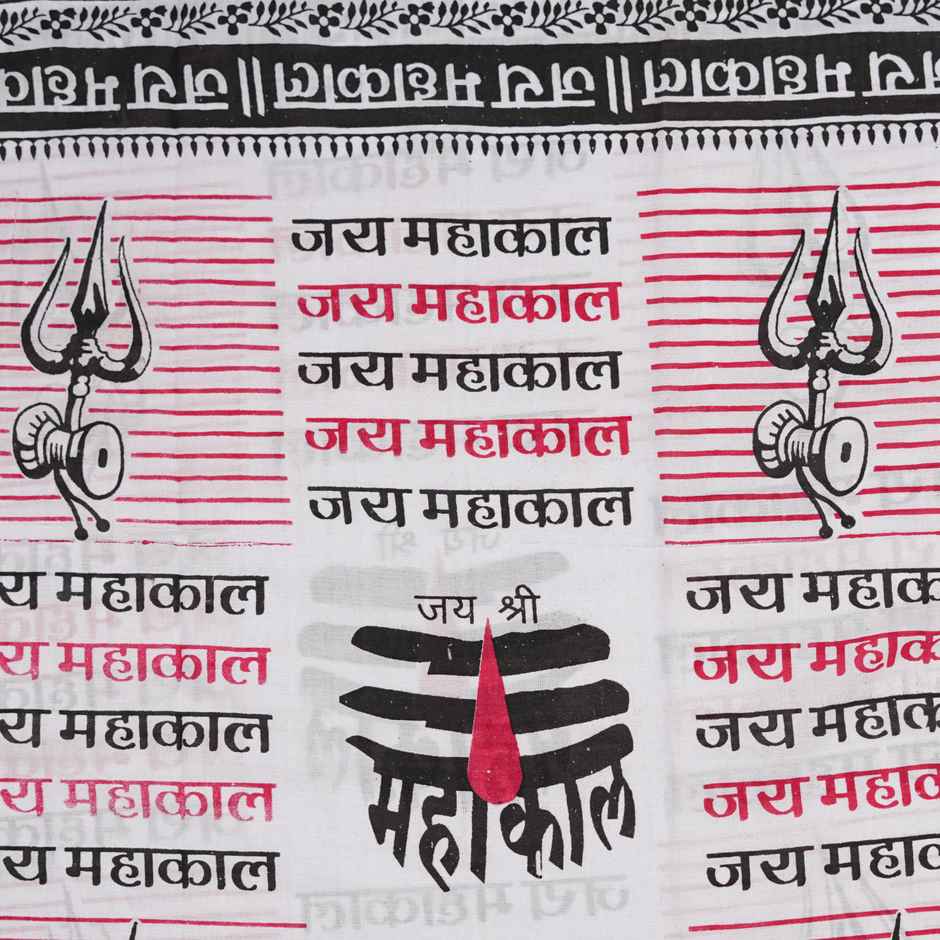 जय महाकाल || जय महाकाल || जय महाकाल
जय महाकाल
जय महाकाल
जय महाकाल
जय महाकाल
जय महाकाल
य महाकाल
य महाकाल
य महाकाल
य महाकाल
य महाकाल
जय श्री
महाकाल
जय महाक
जय महाक
जय महाक
जय महाक
जय महाक